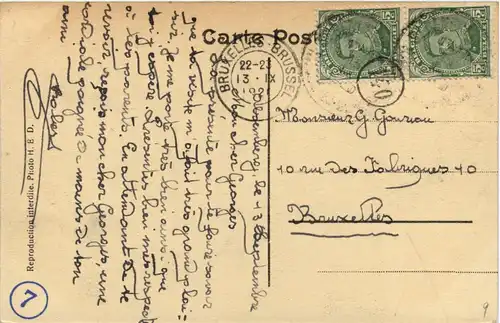 Carte Post
BRUXELLES-BRUSSEL
22-23
13-IX
Monsieur G. Gouzou
10 rue des Fabriques 10
Bruxelles
le 13 Septembre
Mon cher Georges
pour te faire savoir
que ta visite m'a fait très grand plai=
sir, je me porte très bien ainsi que
j'espère Présentes bien mes respects
à tes parents. En attendant de te
revoir, reçois mon cher Georges, une
poignée de mains de ton
ami
Reproduction interdite. Photo H. E. D.
7
9